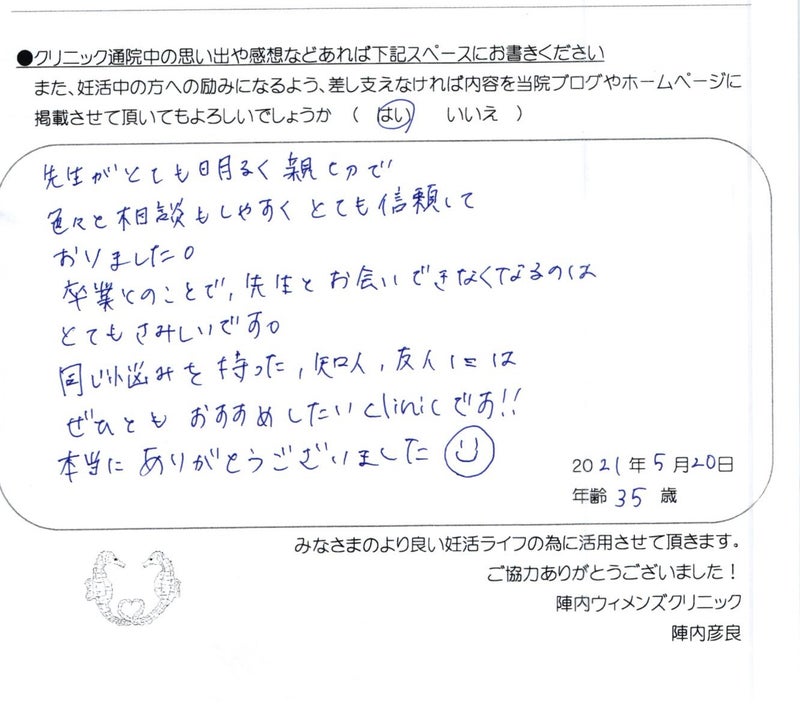 ●クリニック通院中の思い出や感想などあれば下記スペースにお書きください
また、妊活中の方への励みになるよう、差し支えなければ内容を当院ブログやホームページに
掲載させて頂いてもよろしいでしょうか　(　はい　　いいえ　)
先生がとても明るく親切で
色々と相談もしやすくとても信頼して
おりました。
卒業とのことで、先生とお会いできなくなるのは
とてもさみしいです。
同じ悩みを持った、知人、友人には
ぜひともおすすめしたいclinicです!!
本当にありがとうございました
2021年5月20日
年齢35歳
みなさまのより良い妊活ライフの為に活用させて頂きます。
ご協力ありがとうございました！
陣内ウィメンズクリニック
陣内彦良